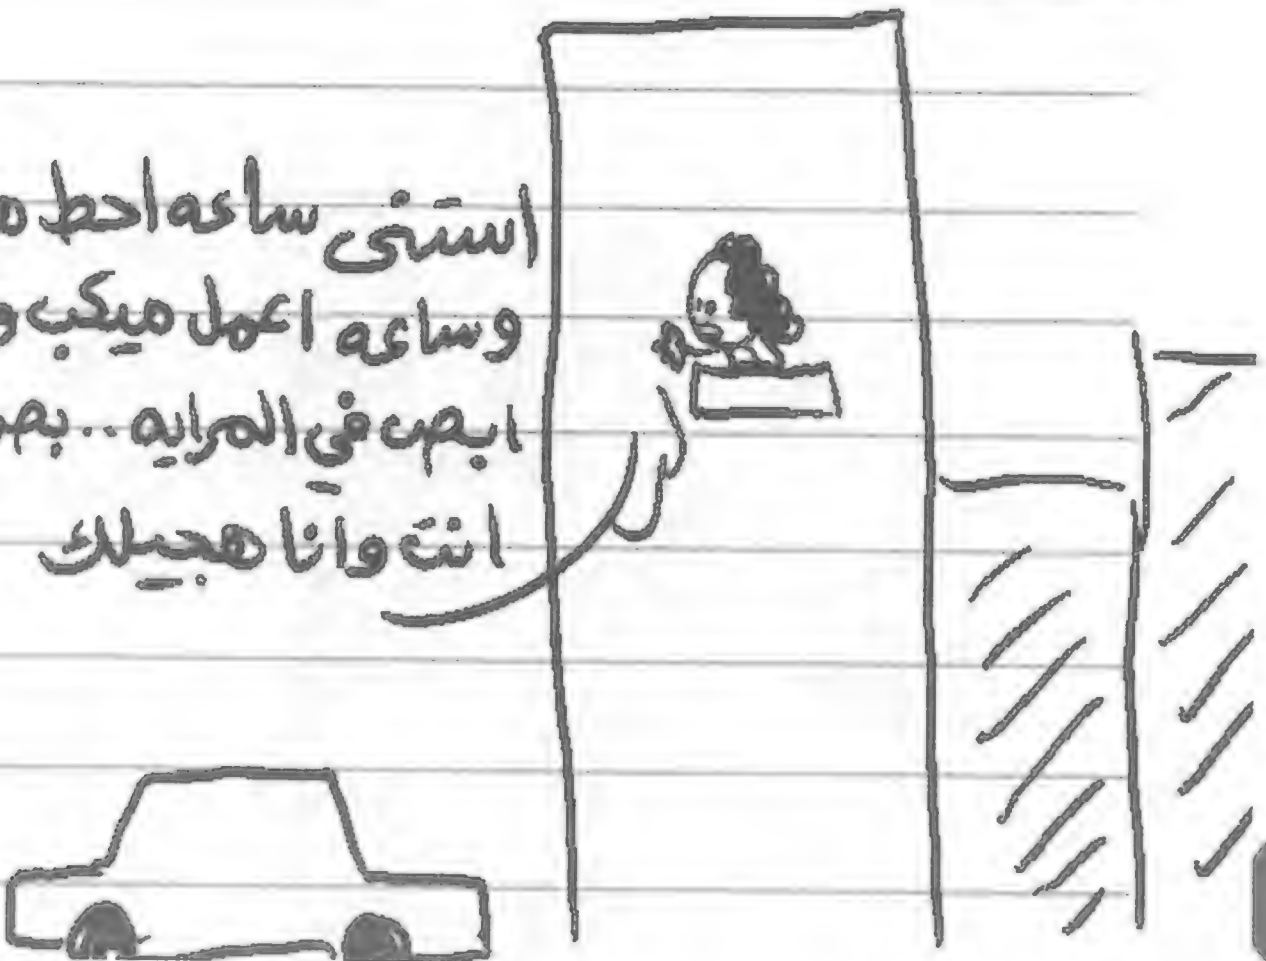 استنى ساعه احط
وساعه اعمل ميكب و
ابص في المرايه ..
انت وانا هجيلك